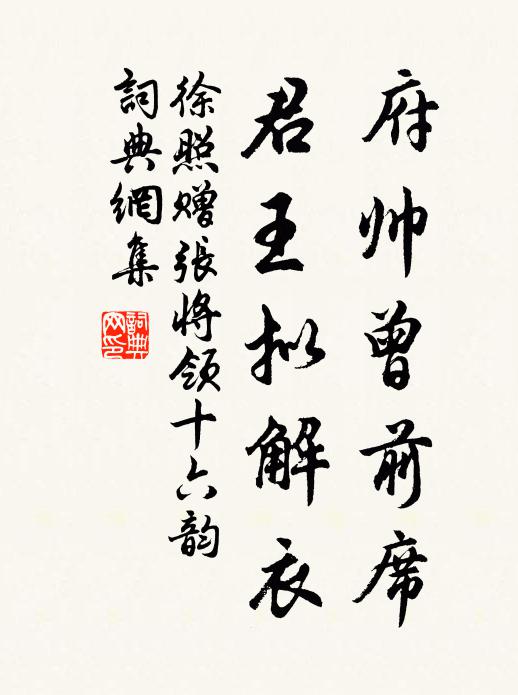 府帅曾前席
君王拟解衣
徐照赠張将领十六韵
詞典網集
詞典
网印